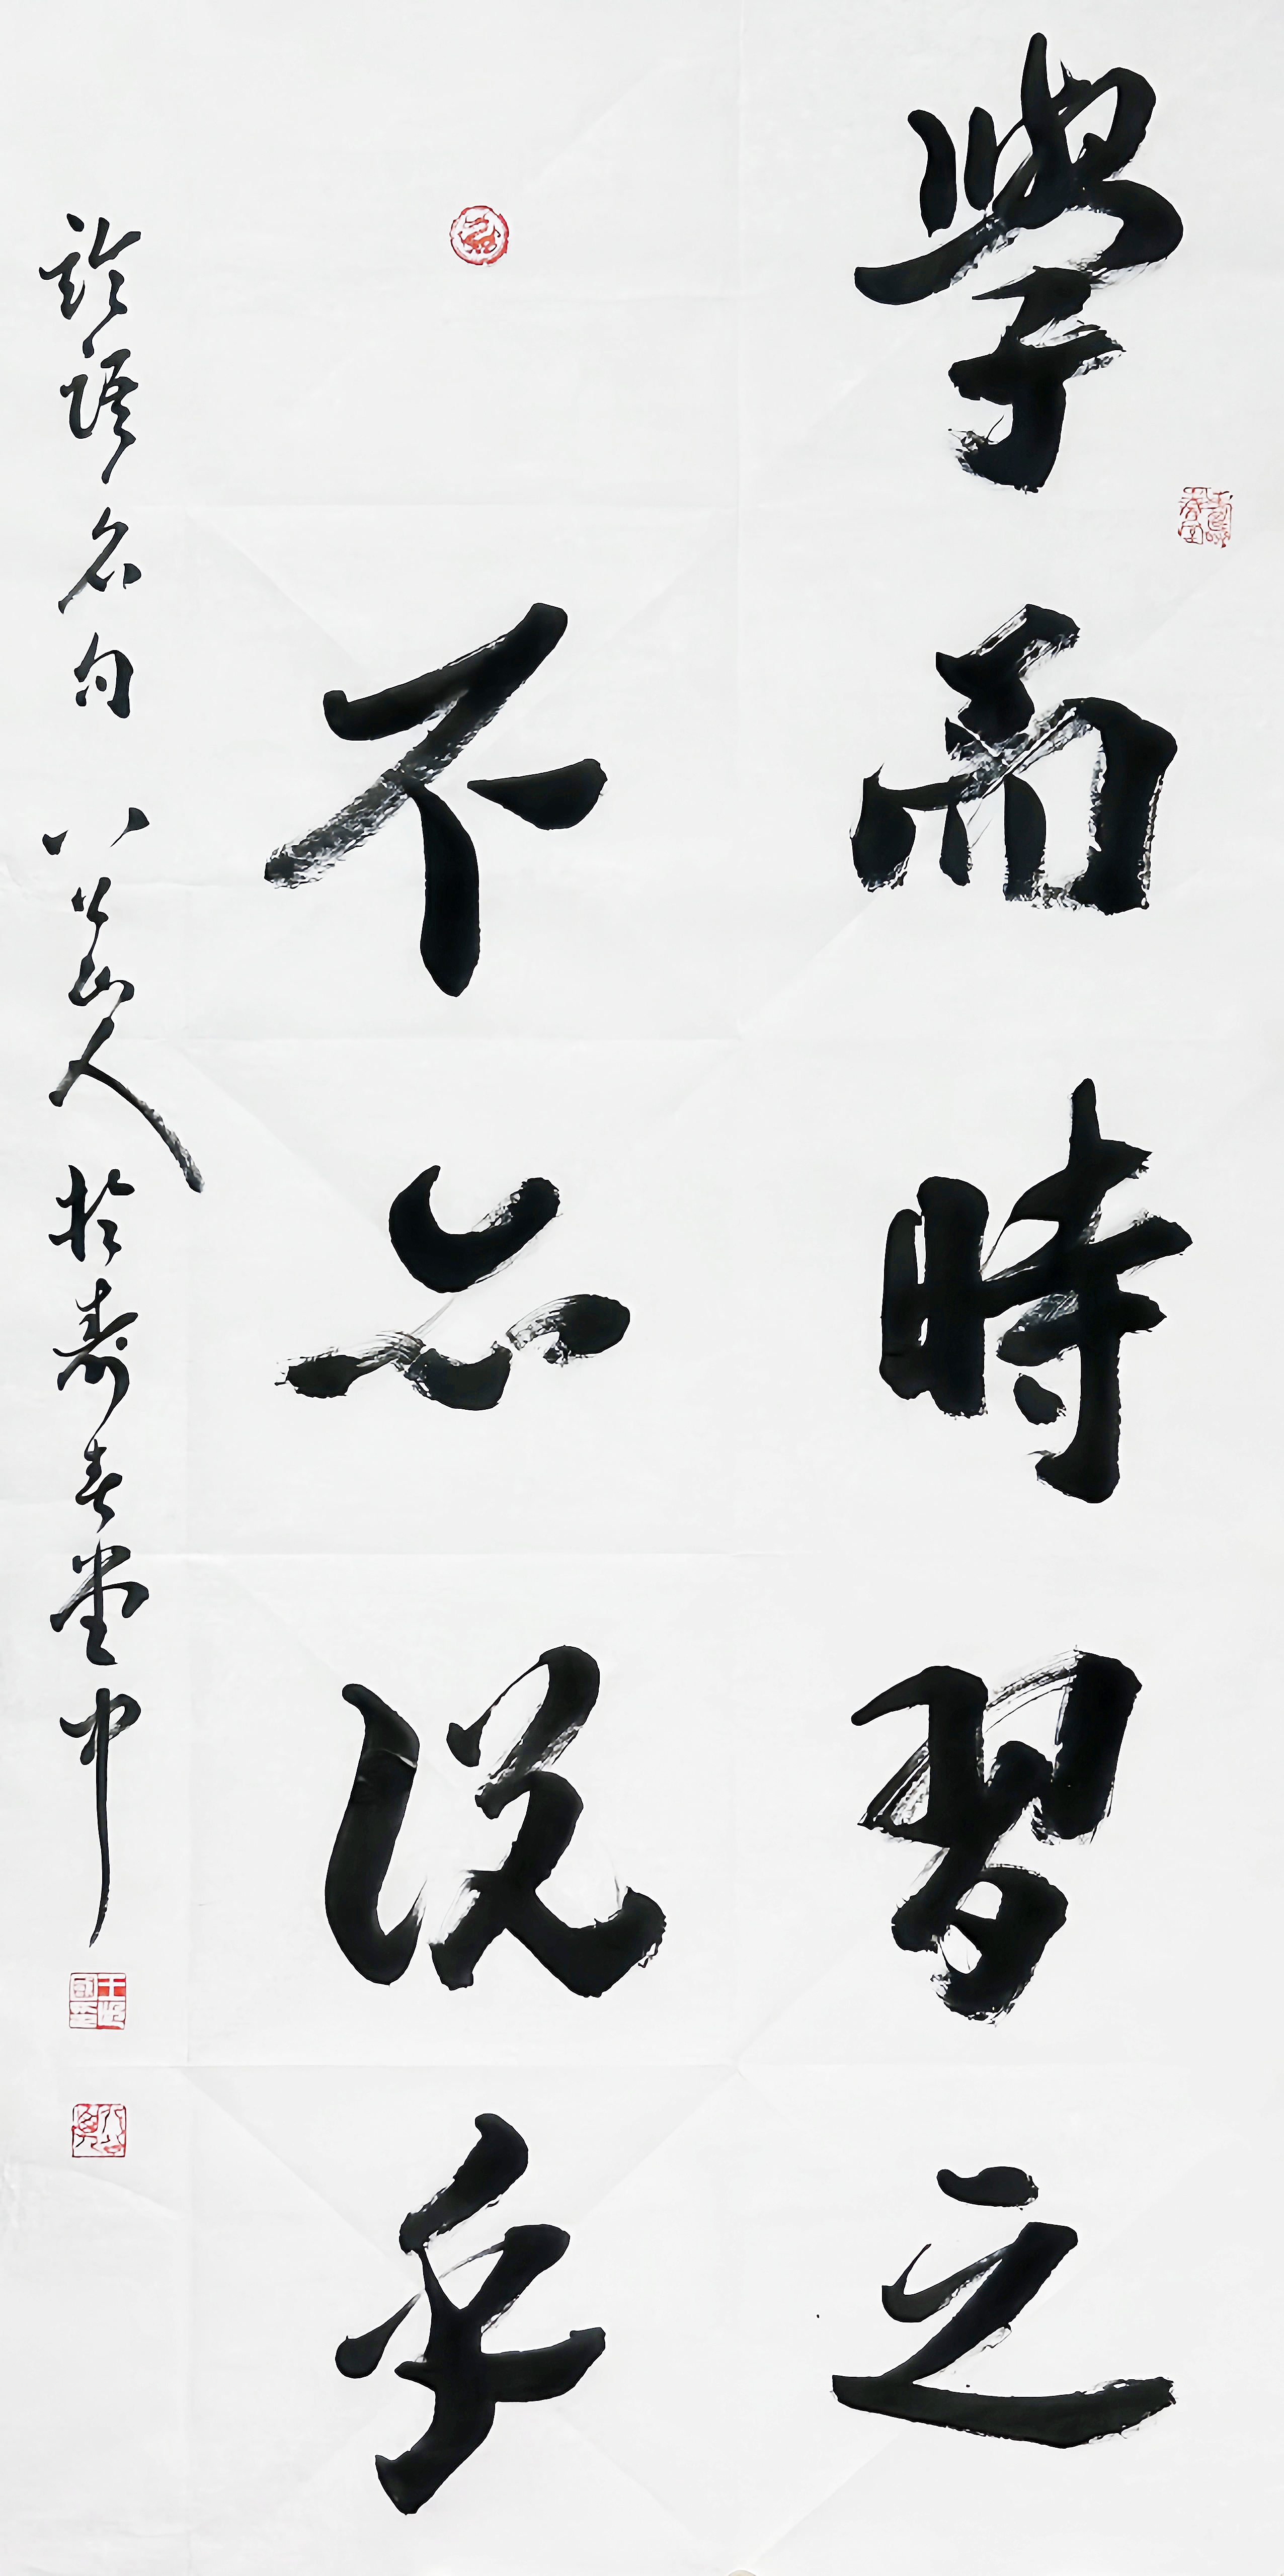 學而時習之
不亦说乎
論語名句 八公山人於壽春堂中